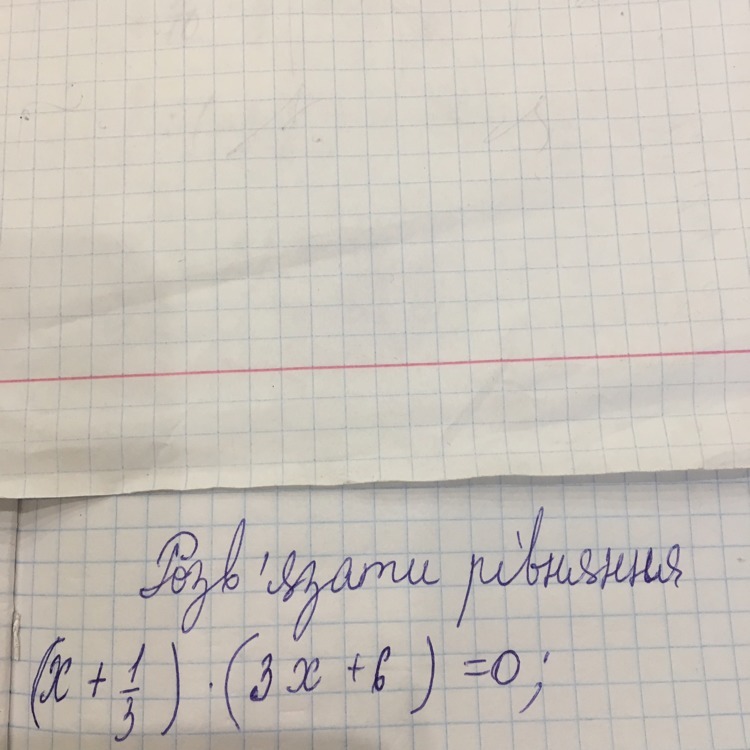 Розв'язати рівняння
(x + 1/3) · (3x + 6) = 0;